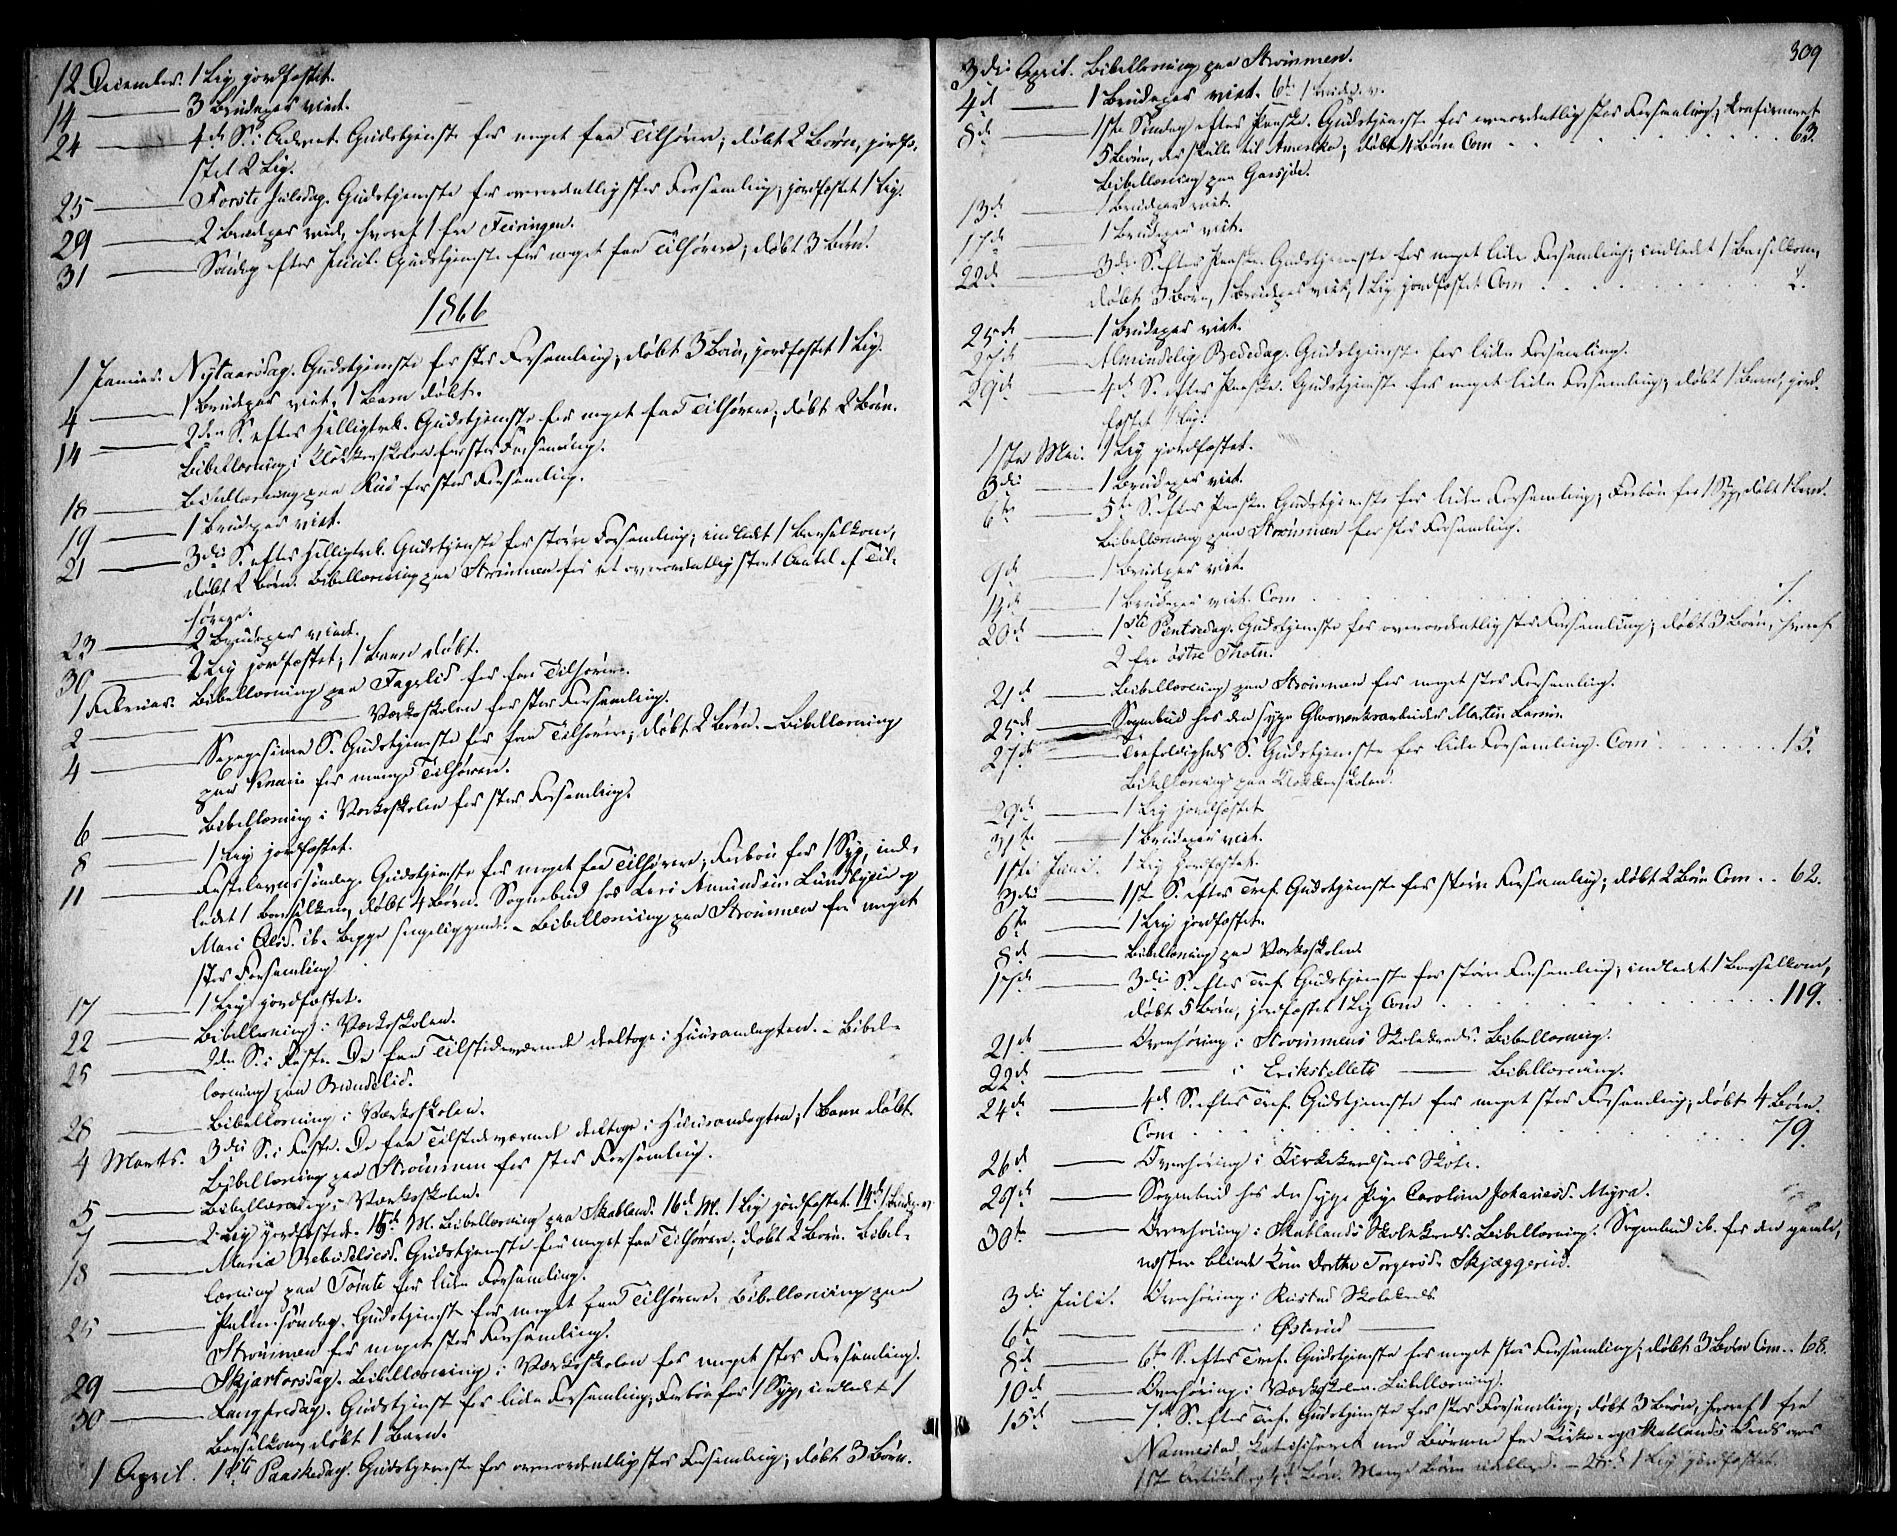 12 December. 1 Lig jordfæstet.
14 — 3 Brudepar viet.
24 — 4de S. i Advent. Gudstjeneste for meget faa Tilhørere; døbt 2 Børn, jordfæ-
stet 2 Lig.
25 — Første Juledag. Gudstjeneste for overordentlig stor Forsamling; jordfæstet 1 Lig.
29 — 2 Brudepar viet, hvoraf 1 fra Feiringen.
31 — Søndag efter Juul. Gudstjeneste for meget faa Tilhørere; døbt 3 Børn.
1866
1 Januar. Nytaarsdag. Gudstjeneste for stor Forsamling; døbt 3 Børn, jordfæstet 1 Lig.
4 — 1 Brudepar viet, 1 Barn døbt.
14 — 2den S. efter Helligtrek. Gudstjeneste for meget faa Tilhørere; døbt 2 Børn.
Bibellæsning i Klokkerskolen for stor Forsamling.
18 — Bibellæsning paa Rud for stor Forsamling.
19 — 1 Brudepar viet.
21 — 3die S. efter Helligtrek. Gudstjeneste for større Forsamling; indledt 1 Barselkone,
døbt 2 Børn. Bibellæsning paa Strømmen for et overordentlig stort Antal af Til-
hørere.
23 — 2 Brudepar viet.
30 — 2 Lig jordfæstet; 1 Barn døbt.
1 Februar. Bibellæsning paa Fagerlid for faa Tilhørere.
2 — — Værkskolen for stor Forsamling.
4 — Sexagesima S. Gudstjeneste for faa Tilhørere; døbt 2 Børn. – Bibellæsning
paa Knai for mange Tilhørere.
6 — Bibellæsning i Værkskolen for stor Forsamling.
8 — 1 Lig jordfæstet.
11 — Fastelavnssøndag. Gudstjeneste for meget faa Tilhørere; Forbøn for 1 Syg, ind-
ledet 1 Barselkone, døbt 4 Børn. Sognebud hos Lars Amundsen Lundbyeie og
Mari Olsd. ib. begge sengeliggende. – Bibellæsning paa Strømmen for meget
stor Forsamling.
17 — 1 Lig jordfæstet.
22 — Bibellæsning i Værkskolen.
25 — 2den S. i Faste. De faa Tilstedeværende deeltoge i Huusandagten. – Bibel-
læsning paa Brundelid.
28 — Bibellæsning i Værkskolen.
4 Marts. 3die S. i Faste. De faa Tilstedeværende deeltoge i Huusandagten; 1 Barn døbt.
Bibellæsning paa Strømmen for stor Forsamling.
5 — Bibellæsning i Værkskolen.
7 — 2 Lig jordfæstede. 15de M. Bibellæsning paa Skabland. 16de M. 1 Lig jordfæstet. 14de 1 Brudep. v.
18 — Mariæ Bebudelsesd. Gudstjeneste for meget faa Tilhørere; døbt 2 Børn. Bibel-
læsning paa Tømte for liden Forsamling.
25 — Palmesøndag. Gudstjeneste for meget faa Tilhørere. Bibellæsning paa
Strømmen for meget stor Forsamling.
29 — Skjærtorsdag. Bibellæsning i Værkskolen for meget stor Forsamling.
30 — Langfredag. Gudstjeneste for liden Forsamling; Forbøn for 1 Syg, indledt 1
Barselkone, døbt 1 Barn.
1 April. 1ste Paaskedag. Gudstjeneste for overordentlig stor Forsamling; døbt 3 Børn.
309
3die April. Bibellæsning paa Strømmen.
4de — 1 Brudepar viet. 6te 1 Brudep. v.
8de — 1ste Søndag efter Paaske. Gudstjeneste for overordentlig stor Forsamling; Konfirmeret
5 Børn, der skulle til Amerika; døbt 4 Børn Com . . . 63.
Bibellæsning paa Garsjøe.
13de — 1 Brudepar viet.
17de — 1 Brudepar viet.
22de — 3die S. efter Paaske. Gudstjeneste for meget liden Forsamling; indledt 1 Barselkone,
døbt 3 Børn, 1 Brudepar viet, 1 Lig jordfæstet Com . . . 2.
25de — 1 Brudepar viet.
27de — Almindelig Bededag. Gudstjeneste for liden Forsamling.
29de — 4de S. efter Paaske. Gudstjeneste for meget liden Forsamling; døbt 1 Barn, jord-
fæstet 1 Lig.
1ste Mai. 1 Lig jordfæstet.
3die — 1 Brudepar viet.
6te — 5te S. efter Paaske. Gudstjeneste for liden Forsamling; Forbøn for 1 Syg, døbt 1 Barn.
Bibellæsning paa Strømmen for stor Forsamling.
9de — 1 Brudepar viet.
14de — 1 Brudepar viet. Com . . . 1.
20de — 1ste Pintsedag. Gudstjeneste for overordentlig stor Forsamling; døbt 3 Børn, hvoraf
2 fra østre Thoten.
21de — Bibellæsning paa Strømmen for meget stor Forsamling.
25de — Sognebud hos den syge Glasværksarbeider Martin Larsen.
27de — Trefoldigheds S. Gudstjeneste for liden Forsamling. Com . . . 15.
Bibellæsning paa Klokkerskolen.
29de — 1 Lig jordfæstet
31te — 1 Brudepar viet.
1ste Juni. 1 Lig jordfæstet.
3die — 1ste S. efter Tref. Gudstjeneste for større Forsamling; døbt 2 Børn Com . . 62.
6te — 1 Lig jordfæstet.
8de — Bibellæsning paa Værkskolen.
17de — 3die S. efter Tref. Gudstjeneste for større Forsamling; indledt 1 Barselkone,
døbt 5 Børn, jordfæstet 1 Lig Com . . . 119.
21de — Overhøring i Strømmens Skolekreds. Bibellæsning.
22de — — i Erikstellets — Bibellæsning.
24de — 4de S. efter Tref. Gudstjeneste for meget stor Forsamling; døbt 4 Børn.
Com . . . 79.
26de — Overhøring i Kirkekredsens Skole.
29de — Sognebud hos den syge Pige Caroline Johanesd. Myra.
30te — Overhøring i Skablands Skolekreds. Bibellæsning. Sognebud ib. for den gamle,
næsten blinde Kone Dorthe Torgersd. Skjæggerud.
3die Juli. Overhøring i Rustad Skolekreds.
6te — — i Østerud —
8de — 6te S. efter Tref. Gudstjeneste for meget stor Forsamling; døbt 3 Børn Com . . 68.
10de — Overhøring i Værkskolen. Bibellæsning.
15de — 7de S. efter Tref. Gudstjeneste for stor Forsamling; døbt 3 Børn, hvoraf 1 fra
Nannestad. Katekiseret med Børnene fra Kirke- og Skablands Kreds over
1ste Artikel og 4de Bøn. Mange Børn udeblev. – 1 Lig jordfæstet.